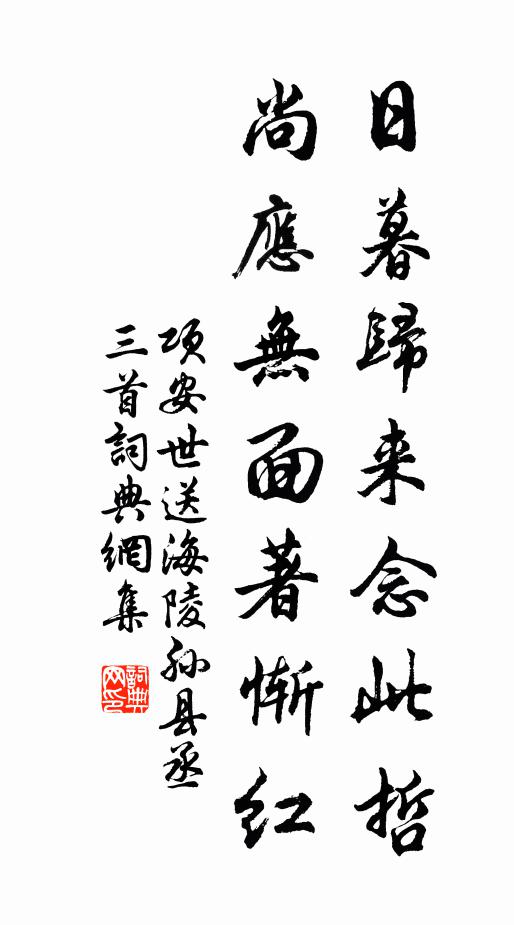 日暮歸来念此哲
尚應無面著慚紅
項安世送海陵孙县丞
三首詞典網集
詞典
网印